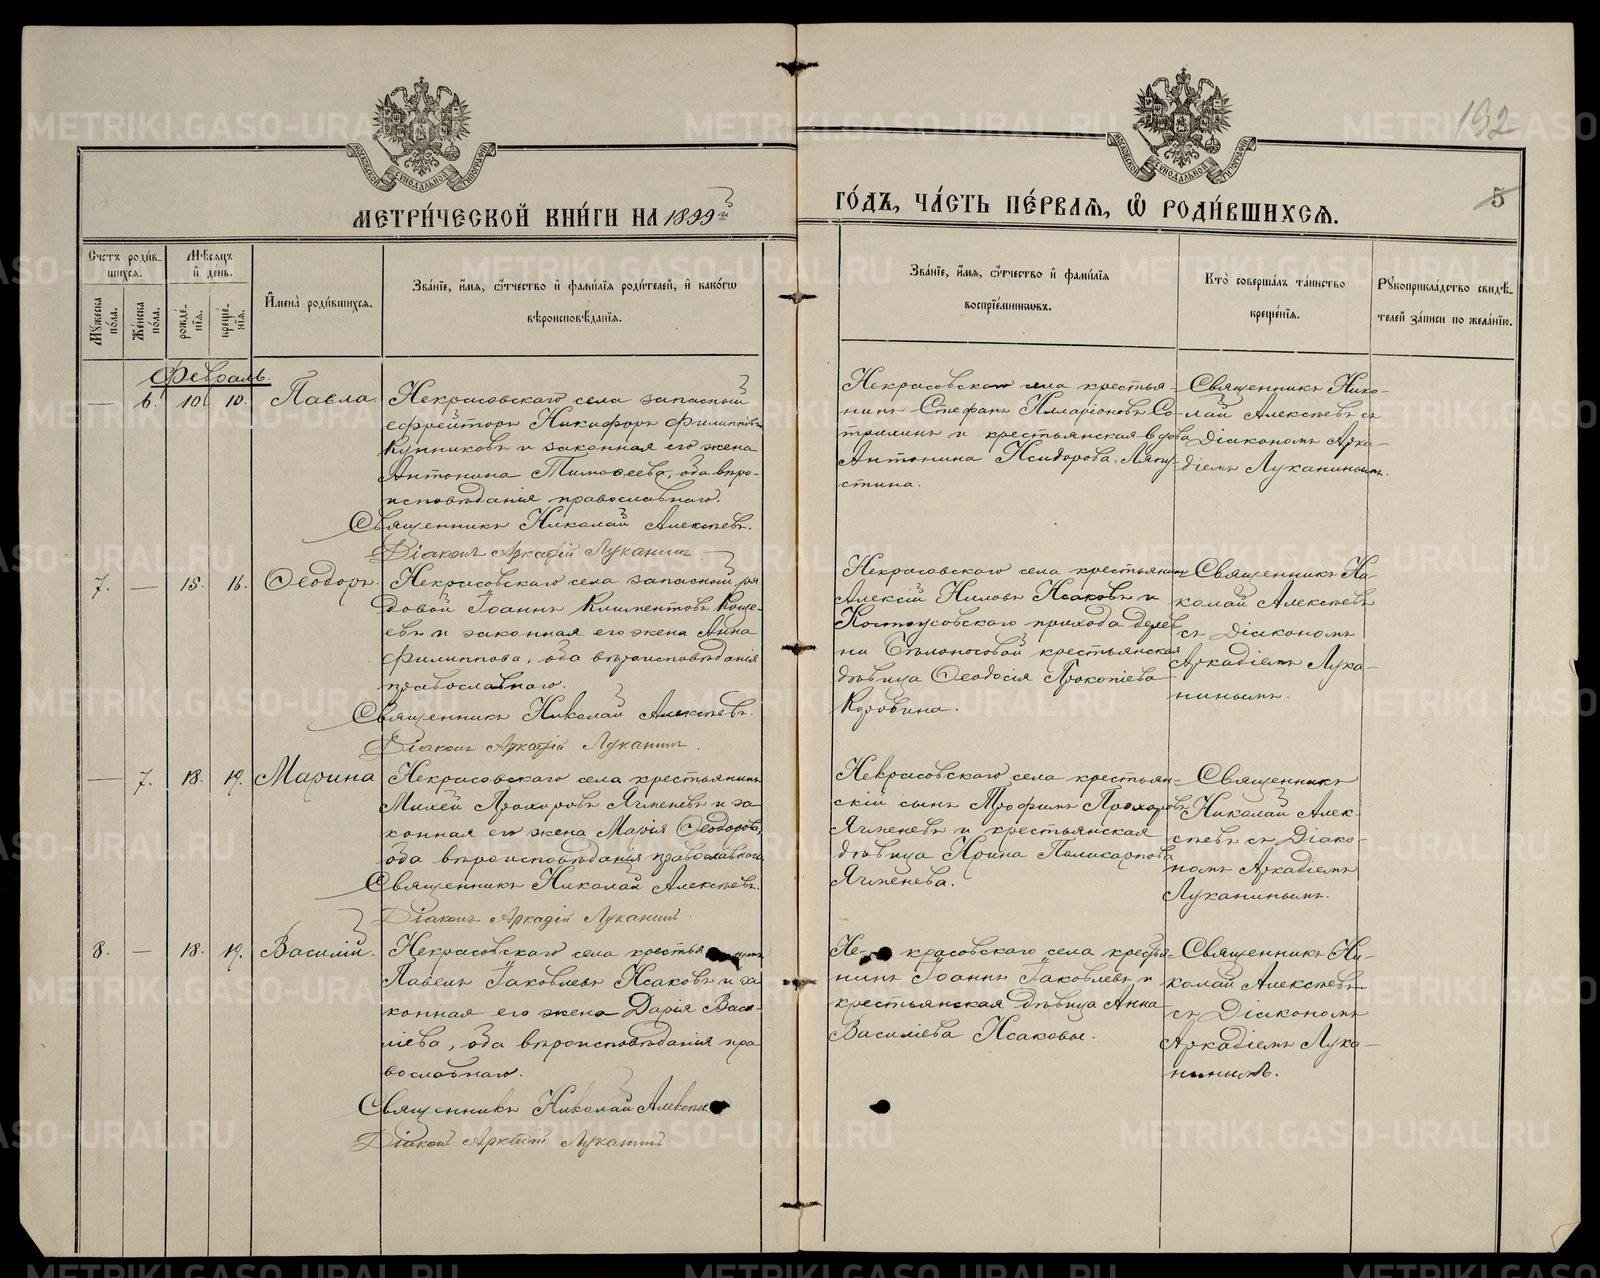 192
5
МЕТРИ́ЧЕСКОЙ КНИ́ГИ НА 1899й
ГО́ДЪ, ЧА́СТЬ ПЕ́РВАѦ, Ѡ РОДИ́ВШИХСѦ.
Счетъ роди́в-
шихся.
Мѣ́сяцъ
и҆ де́нь.
Мꙋжеска по́ла.
Же́нска по́ла.
рожде́-
нїѧ.
креще́-
нїѧ.
И҆мена̀ роди́вшихся.
Зва́нїе, и҆́мѧ, ѻ҆́тчество и҆ фами́лїѧ роди́телей, и҆ како́гѡ
вѣроисповѣ́данїѧ.
Зва́нїе, и҆́мѧ, ѻ҆́тчество и҆ фами́лїѧ
воспрїе́мникѡвъ.
Кто̀ соверша́лъ та́инство
креще́нїѧ.
Рꙋкоприкла́дство свидѣ́-
телей за́писи по жела́нїю.
Февраль.
— 6. 10. 10. Павла
Некрасовскаго села запасный
ефрейторъ Никифоръ Филипповъ
Купниковъ и законная его жена
Антонина Тимоѳеева, оба вѣро-
исповѣданія православнаго.
Священникъ Николай Алексѣевъ.
Діаконъ Аркадій Луканинъ.
Некрасовскаго села крестья-
нинъ Стефанъ Илларіоновъ Со-
тринъ и крестьянская вдова
Антонина Исидорова
стина.
Священникъ Нико-
лай Алексѣевъ съ
Діакономъ Арка-
діемъ Луканинымъ.
7. — 15. 16. Ѳеодоръ.
Некрасовскаго села запасный ря
довой Іоаннъ Климентовъ Коще-
евъ и законная его жена Анна
Филиппова, оба вѣроисповѣданія
православнаго.
Священникъ Николай Алексѣевъ.
Діаконъ Аркадій Луканинъ.
Некрасовскаго села крестьянинъ
Алексій Ниловъ Исаковъ и
Костоусовскаго прихода дерев
ни Бѣлоносовой крестьянская
дѣвица Ѳеодосія Прокопіева
Куровина.
Священникъ Ни-
колай Алексѣевъ
съ Діакономъ
Аркадіемъ Лука-
нинымъ.
— 7. 18. 19. Марина
Некрасовскаго села крестьянинъ
Михей Прохоровъ Ячменевъ и за
конная его жена Марія Ѳеодорова,
оба вѣроисповѣданія православнаго
Священникъ Николай Алексѣевъ.
Діаконъ Аркадій Луканинъ.
Некрасовскаго села крестьян-
скій сынъ Трофимъ Прохоровъ
Ячменевъ и крестьянская
дѣвица Ирина Поликарпова
Ячменева.
Священникъ
Николай Алек-
сѣевъ съ Діако-
номъ Аркадіемъ
Луканинымъ.
8. — 18. 19. Василій.
Некрасовскаго села крестья нинъ
Павелъ Іаковлевъ Исаковъ и за
конная его жена Дарія Васи-
ліева, оба вѣроисповѣданія пра
вославнаго.
Священникъ Николай Алексѣев
Діаконъ Аркадій Луканинъ
Не- красовскаго села крестья-
нинъ Іоаннъ Іаковлевъ и
крестьянская дѣвица Анна
Василіева Исаковы.
Священникъ Ни-
колай Алексѣевъ
съ Діакономъ
Аркадіемъ Лука-
нинымъ.
METRIKI.GASO-URAL.RU